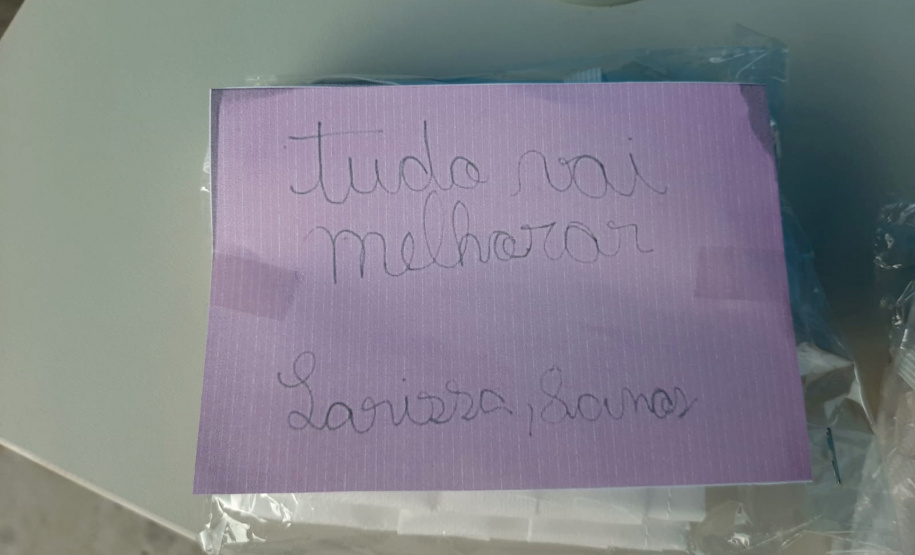 tudo vai
melhorar
Larissa, 8 anos